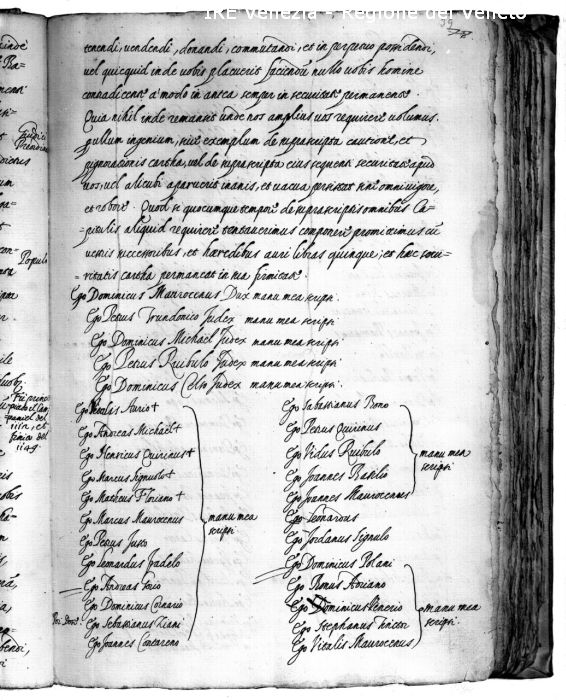 IRE Venezia - Regione del Veneto
tenendi, vendendi, donandi, commutandi, et in perpetuo possidendi,
vel quicquid inde vobis placuerit faciendi nullo vobis homine
contradicente a modo in antea semper in securitate permanente.
Quia nihil inde remansit unde nos amplius vos requirere volumus.
nullum ingenium, sive exemplum de suprascripta cautione, et
pignorationis cartha, vel de suprascripta eius sequente securitate apud
nos, vel alicubi aparuerit inanis, et vacua persistat sine omni vigore,
et robore. Quod si quocumque tempore de suprascriptis omnibus Ca-
-pitulis aliquid requirere tentaverimus componere promittimus cu
vestris successoribus, et haeredibus auri libras quinque; et haec secu-
-ritatis cartha permaneat in sua firmitate.
Ego Dominicus Maurocenus Dux manu mea scripsi.
Ego Petrus Trundonico Judex manu mea scripsi
Ego Dominicus Michael Judex manu mea scripsi
Ego Petrus Ruibulo Judex manu mea scripsi
Ego Dominicus Celso Judex manu mea scripsi.
Ego Aurio +
Ego Andreas Michael +
Ego Henricus Quirinus +
Ego Marcus Signulo +
Ego Matheus Floriano +
Ego Marcus Maurocenus
Ego Petrus Justo
Ego Leonardus Fradelo
Ego Andreas
Ego Dominicus Cornario
Ego Sebastianus Ziani
Ego Joannes Contareno
manu mea
scripsi.
Ego Sabastianus Bono
Ego Petrus Quirinus
Ego Vidus Ruibulo
Ego Joannes Basilio
Ego Joannes Maurocenus
Ego Leonardus
Ego Jordanus Signulo
Ego Dominicus Polani
Ego Bonus Adriano
Ego Dominicus Venerio
Ego Stephanus
Ego Vitalis Maurocenus
manu mea
scripsi.
manu mea
scripsi.
Populo
1149